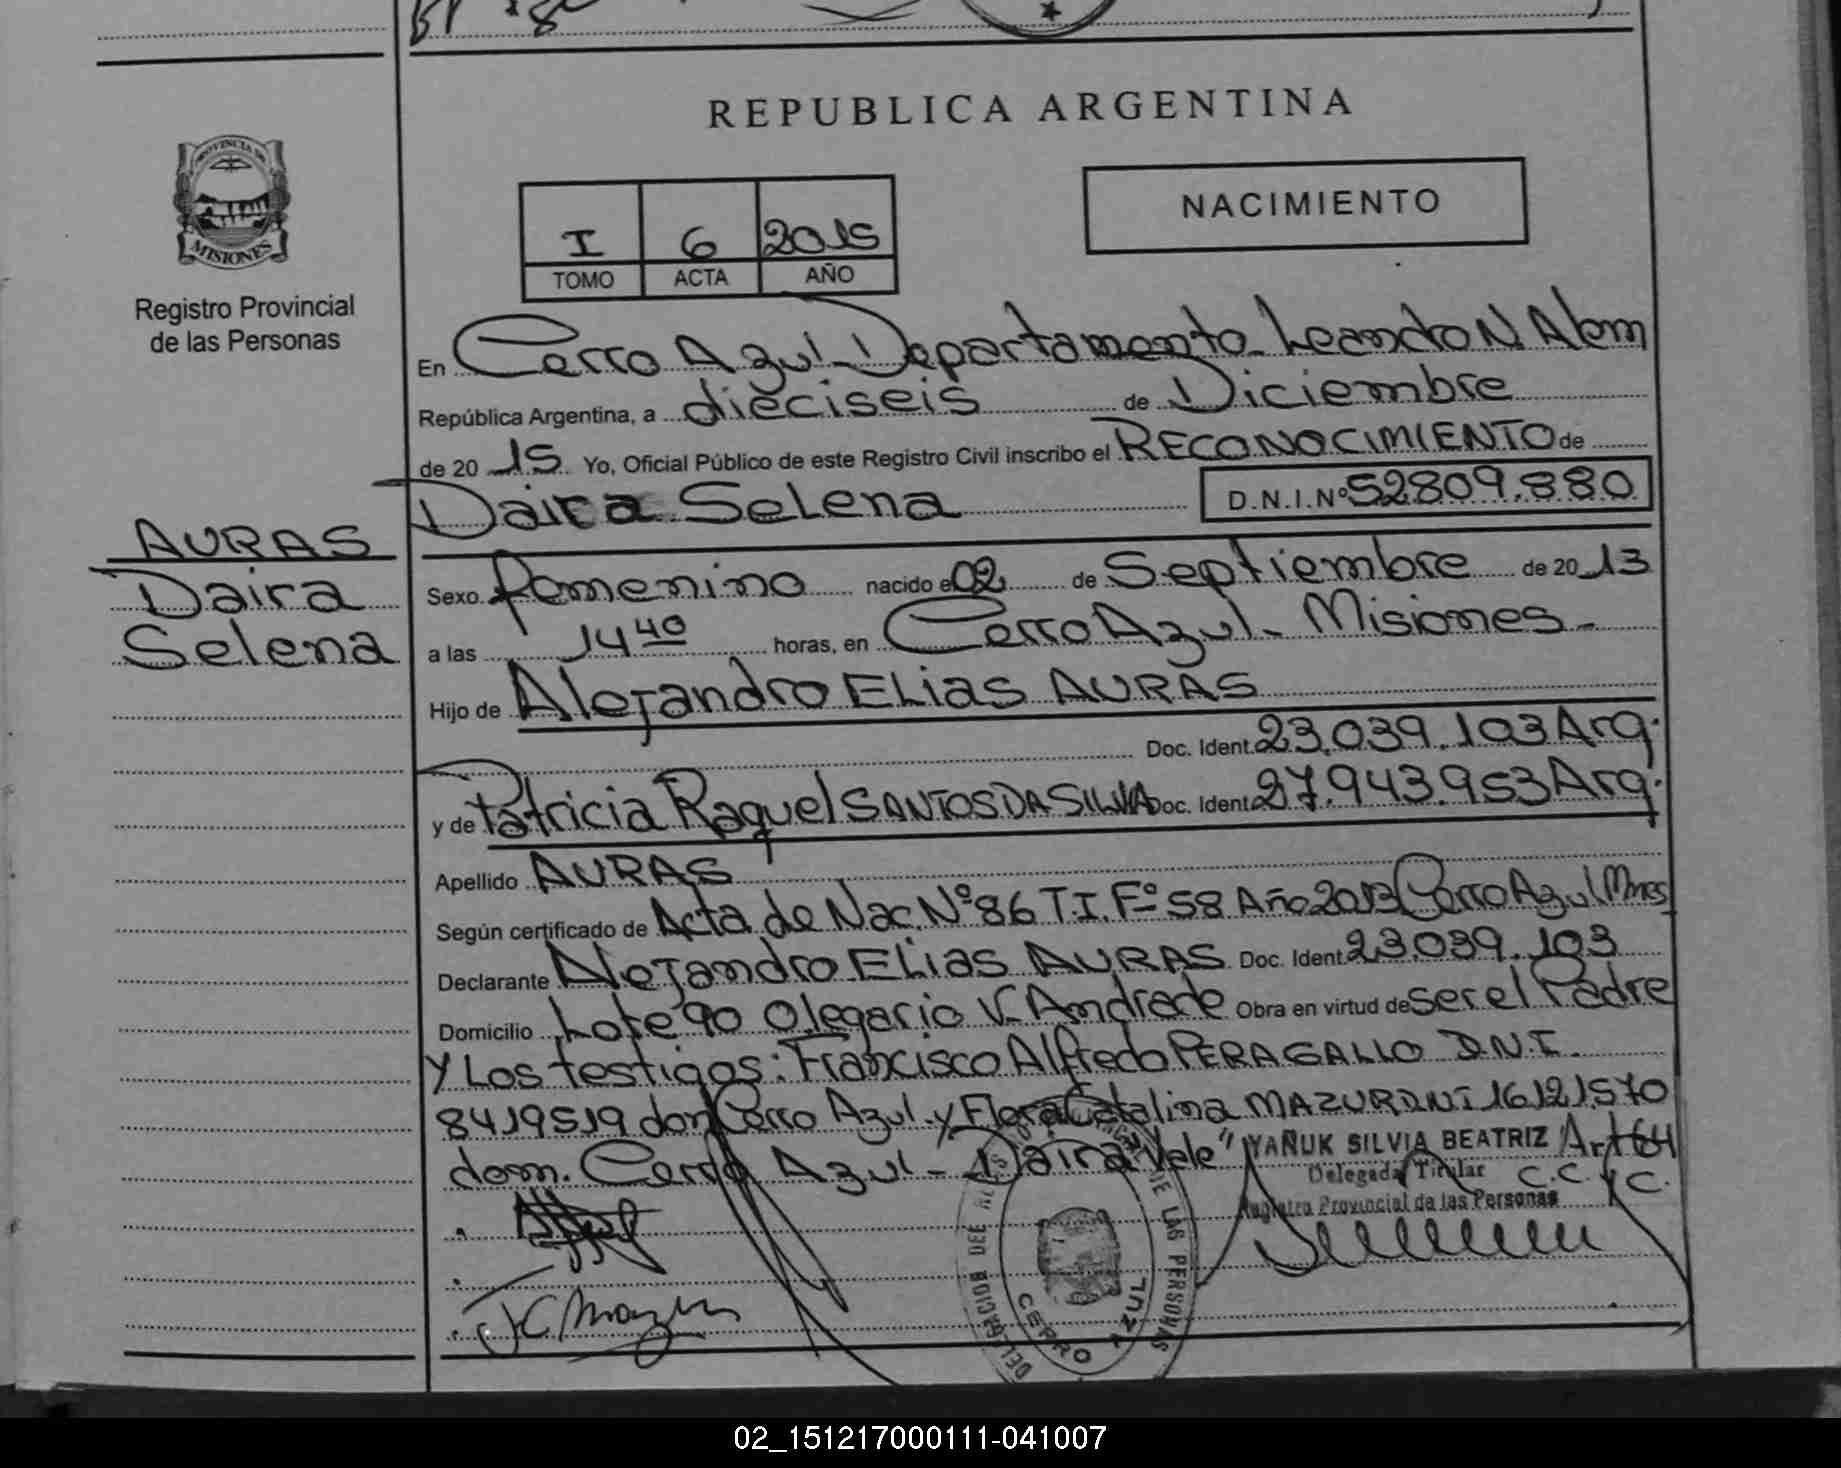 REPUBLICA ARGENTINA
PROVINCIA DE
MISIONES
Registro Provincial
de las Personas
NACIMIENTO
I 6 2015
TOMO ACTA AÑO
En Cerro Azul - Departamento Leandro N. Alem
República Argentina, a dieciseis de Diciembre
de 2015 Yo, Oficial Público de este Registro Civil inscribo el RECONOCIMIENTO de
Daira Selena D.N.I.Nº 52809.880
AURAS
Daira
Selena
Sexo femenino nacido el 02 de Septiembre de 2013
a las 14 40 horas, en Cerro Azul - Misiones -
Hijo de Alejandro ELias AURAS
Doc. Ident. 23.039.103 Arg.
y de Patricia Raquel SANTOS DA SILVA Doc. Ident. 27.943.953 Arg.
Apellido AURAS
Según certificado de Acta de Nac. Nº 86 T.I. Fº 58 Año 2013 Cerro Azul Mnes
Declarante Alejandro ELias AURAS Doc. Ident. 23.039.103
Domicilio Lote 90 Olegario V. Andrade Obra en virtud de ser el Padre
y Los testigos: Francisco Alfredo PERAGALLO D.N.I.
8419519 dom Cerro Azul y Flora Catalina MAZUR DNI 16121570
dom. Cerro Azul - "Daira Vele" Art 64
C.C. y C.
YAÑUK SILVIA BEATRIZ
Delegada Titular
Registro Provincial de las Personas
DE LAS PERSONAS
CERRO AZUL
02_151217000111-041007